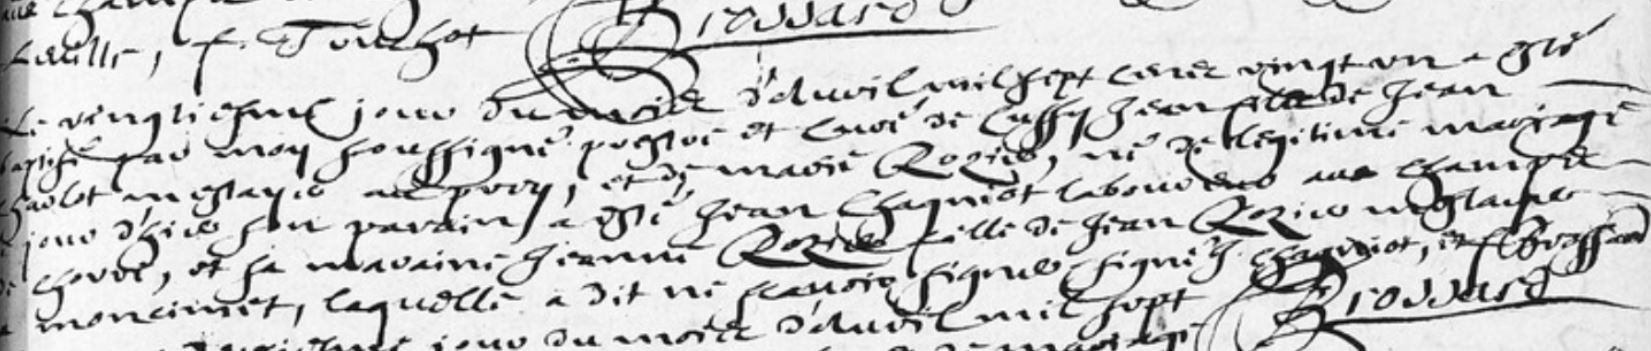 Laville, f. Touchot Brossard
Le vingtiesme jour du mois d'avril mil sept cent vingt un a esté
baptisé par moy soussigné prestre et curé de Cussy Jean fils de Jean
Charlot mestayer au et de marie Rozier, né de legitime mariage
jour d'hier son parain a esté Jean Chagniot laboureur aux champs
et sa maraine Jeanne Rozier fille de Jean Rozier mestaier
moncimet, laquelle a dit ne scavoir signer signé J. Chagniot, et f Brossard
jour du mois d'avril mil sept Brossard
mariage